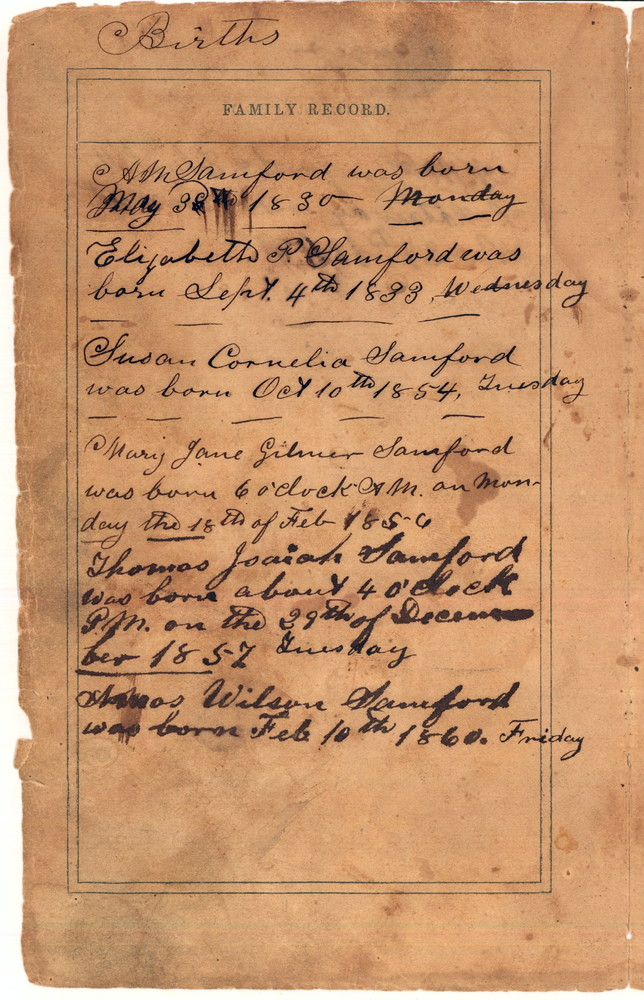 Births
FAMILY RECORD.
A M Samford was born
May 1830 Monday
Elizabeth P. Samford was
born Sept. 4th 1833, Wednesday
Susan Cornelia Samford
was born Oct 10th 1854, Tuesday
Mary Jane Gilmer Samford
was born 6 o'clock A.M. on Mon-
day the 18th of Feb 1856
Thomas Isaiah Samford
was born about 4 o'clock
P.M. on the 29th of Decem-
ber 1857 Tuesday
Amos Wilson Samford
was born Feb 10th 1860. Friday